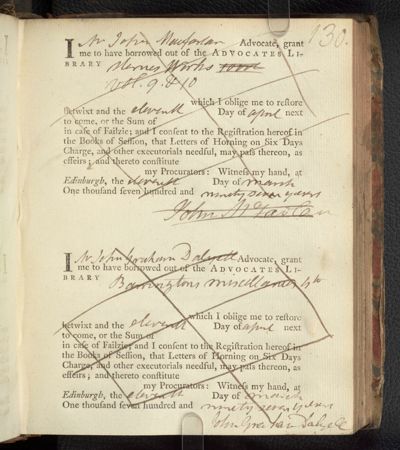 130.
I Mr John Macfarlan Advocate, grant
me to have borrowed out of the ADVOCATES LI-
BRARY Sternes Works
Vol. 9. & 10
which I oblige me to restore
betwixt and the eleventh Day of april next
to come, or the Sum of
in case of Failzie; and I consent to the Registration hereof in
the Books of Session, that Letters of Horning on Six Days
Charge, and other executorials needful, may pass thereon, as
effeirs; and thereto constitute
my Procurators: Witness my hand, at
Edinburgh, the eleventh Day of march
One thousand seven hundred and ninety seven years
John McFarlan
I Mr John Graham Dalyell Advocate, grant
me to have borrowed out of the ADVOCATES LI-
BRARY Barringtons miscellanies 4to
which I oblige me to restore
betwixt and the eleventh Day of april next
to come, or the Sum of
in case of Failzie; and I consent to the Registration hereof in
the Books of Session, that Letters of Horning on Six Days
Charge, and other executorials needful, may pass thereon, as
effeirs; and thereto constitute
my Procurators: Witness my hand, at
Edinburgh, the eleventh Day of march
One thousand seven hundred and ninety seven years
John Graham Dalyell